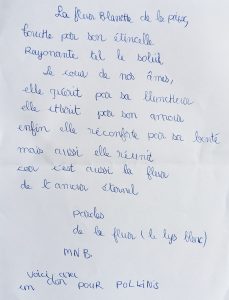 La fleur Blanche de la paix,
touche par son étincelle
Rayonante tel le soleil
Le coeur de nos âmes,
elle guérit par sa blancheur
elle par son amour
enfin elle réconforte par sa bonté
mais aussi elle réunit
car c'est aussi la fleur
de l'amour éternel
paroles
de la fleur (le lys blanc)
MNB.
voici
un don POUR POLLENS